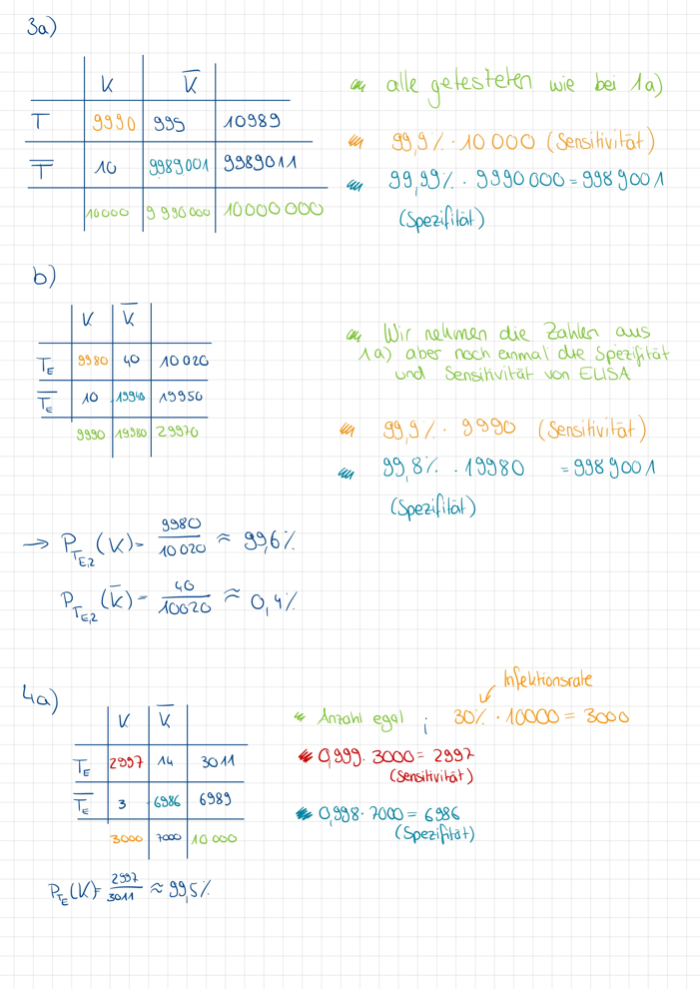 3a)
K K̅
T 9990 995 10989
T̅ 10 9989001 9989011
10000 9 990 000 10000 000
alle getesteten wie bei 1a)
99,9% · 10 000 (Sensitivität)
99,99% · 9990 000 = 998 900 1
(Spezifität)
b)
K K̅
T_E 9980 40 10 020
T̅_E 10 19940 19950
9990 19980 29970
Wir nehmen die Zahlen aus
1a) aber noch einmal die Spezifität
und Sensitivität von ELISA
99,9% · 9990 (Sensitivität)
99,8% · 19980 = 998 900 1
(Spezifität)
→ P_T_E,2 (K) = 9980/10 020 ≈ 99,6%
P_T_E,2 (K̅) = 40/10020 ≈ 0,4%
4a)
Infektionsrate
K K̅
T_E 2997 14 3011
T̅_E 3 6986 6989
3000 7000 10 000
Anzahl egal ; 30% · 10000 = 3000
0,999 · 3000 = 2997
(Sensitivität)
0,998 · 7000 = 6986
(Spezifität)
P_T_E (K) = 2997/3011 ≈ 99,5%